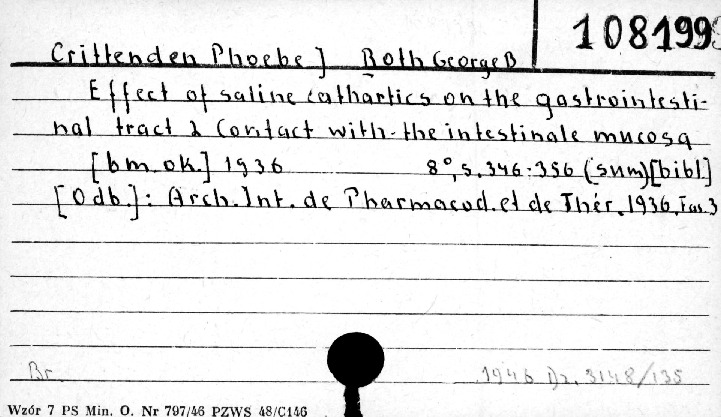 108199
Crittenden Phoebe J Roth George B
Effect of saline cathartics on the gastrointesti-
nal tract & Contact with-the intestinale mucosa
[bm.ok.] 1936 8°, s. 346-356 (sum)[bibl.]
[Odb.]: Arch. Int. de Pharmacod. et de Thér. 1936, Fas. 3
Br. 1946 Dz. 3148/135
Wzór 7 PS Min. O. Nr 797/46 PZWS 48/C146